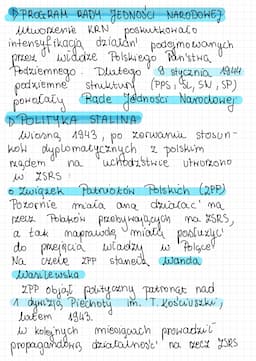 ▷ PROGRAM RADY JEDNOŚCI NARODOWEJ
Utworzenie KRN poskutkowało
intensyfikacją działań podejmowanych
przez władze Polskiego Państwa
Podziemnego. Dlatego 9 stycznia 1944
podziemne struktury (PPS, SL, SN, SP)
powołały Radę Jedności Narodowej
▷ POLITYKA STALINA
Wiosną 1943, po zerwaniu stosun-
ków dyplomatycznych z polskim
rządem na uchodźstwie utworzono
w ZSRS:
○ Związek Patriotów Polskich (ZPP)
Pozornie miała ona działać na
rzecz Polaków przebywających na ZSRS,
a tak naprawdę miała posłużyć
do przejęcia władzy w Polsce
Na czele ZPP stanęła Wanda
Wasilewska
ZPP objął polityczny patronat nad
1 dywizją Piechoty im. T. Kościuszki,
latem 1943.
W kolejnych miesiącach prowadził
propagandową działalność na rzecz ZSRS